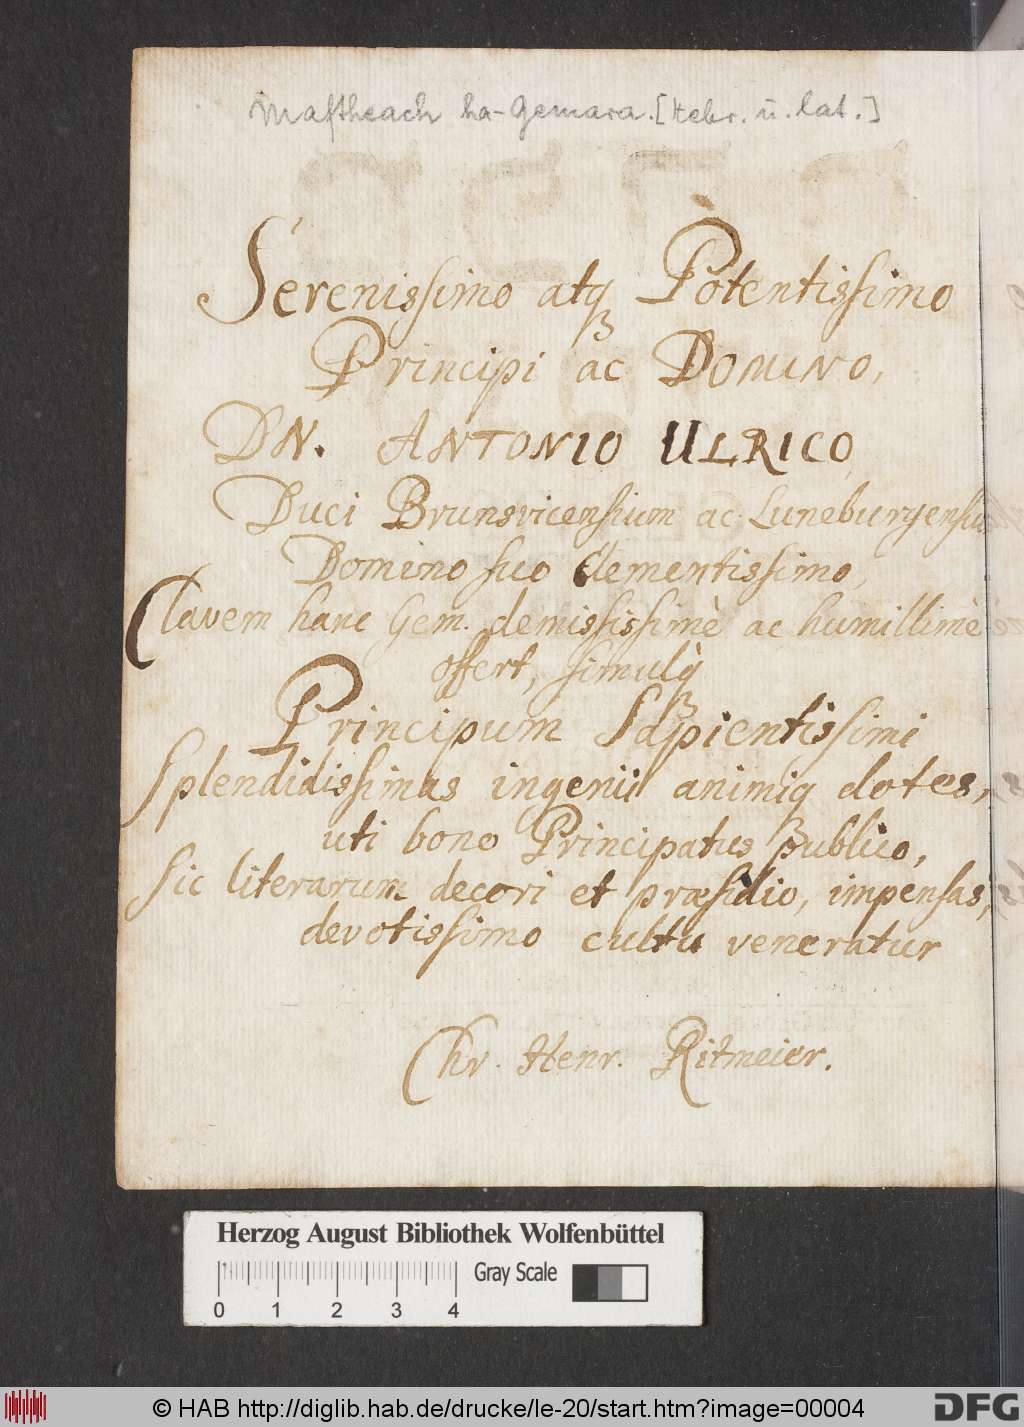 Maftheach ha-Gemara. [Hebr. u. lat.]
Serenissimo atq Potentissimo
Principi ac DOMINO,
DN. ANTONIO ULRICO,
Duci Brunsvicensium ac Luneburgensiu
Domino suo Clementissimo,
Clavem hanc Gem. demississimè ac humillimè
offert, simulq
Principum Sapientissimi
splendidissimas ingenii animiq dotes,
uti bono Principatus publico,
sic literarum decori et præsidio, impensas,
devotissimo cultu veneratur
Chr. Henr. Ritmeier.
Herzog August Bibliothek Wolfenbüttel
Gray Scale
0 1 2 3 4
© HAB http://diglib.hab.de/drucke/le-20/start.htm?image=00004
DFG